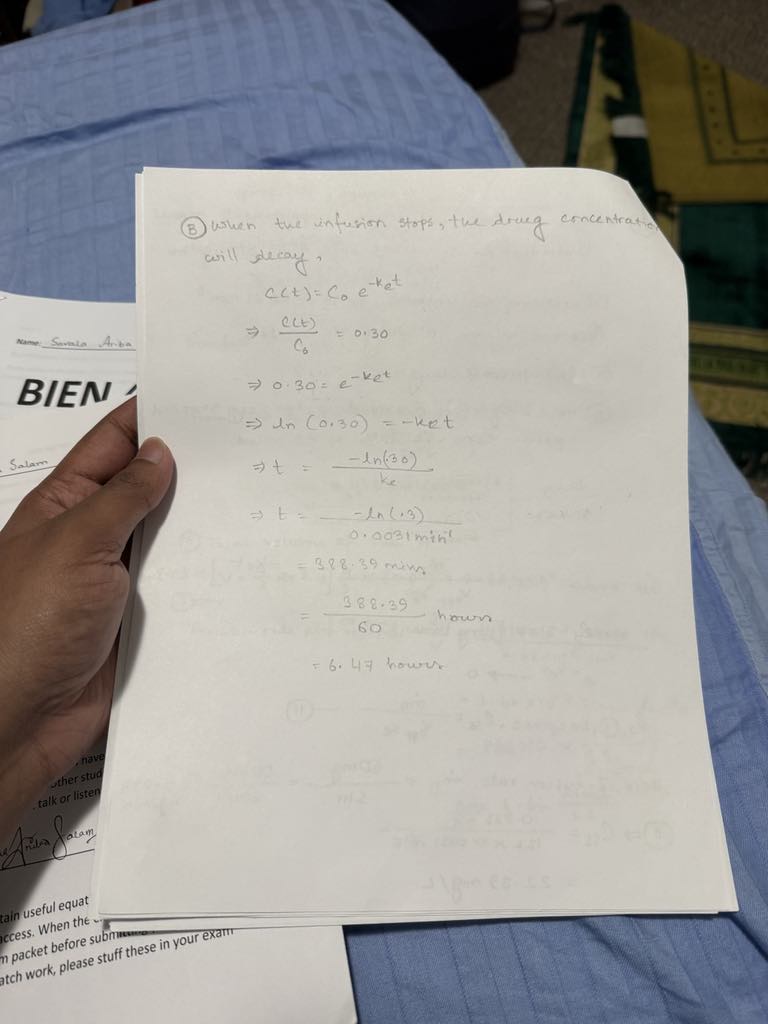 Ⓑ When the infusion stops, the drug concentratio
will decay,
C(t) = C₀ e^-ket
⇒ C(t)/C₀ = 0.30
⇒ 0.30 = e^-ket
⇒ ln (0.30) = -ket
⇒ t = -ln(.30)/ke
⇒ t = -ln(.3)/0.0031 min⁻¹
= 388.39 mins
= 388.39/60 hours
= 6.47 hours
Name: Savala Ariba
BIEN
Salam
have
other stud
talk or listen
Ariba Salam
tain useful equat
access. When the
m packet before submitting
atch work, please stuff these in your exam